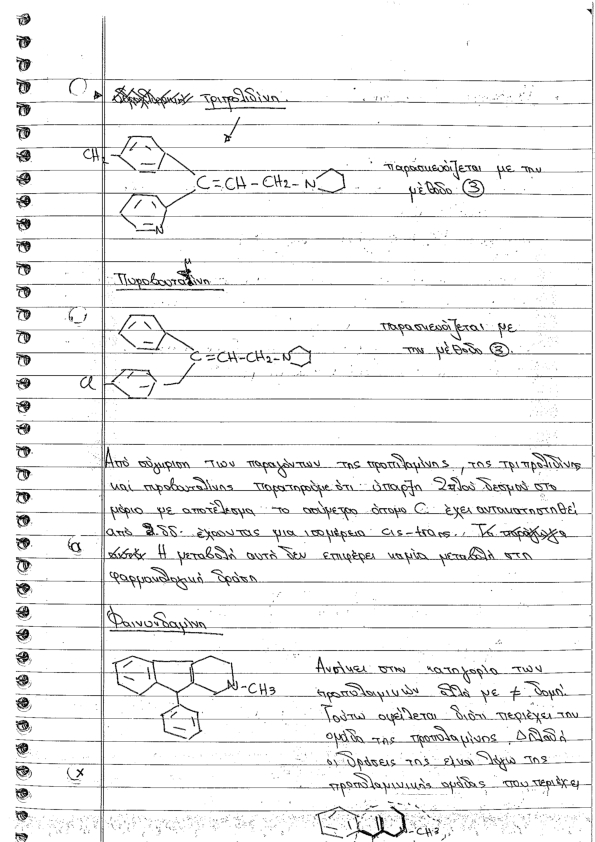 Τριπρολιδίνη.
CH₃
C=CH-CH2-N
N
παρασκευάζεται με την
μέθοδο ③
Πυροβουταμίνη
C=CH-CH2-N
Cl
παρασκευάζεται με
την μέθοδο ③.
Από σύγκριση των παραγόντων της προπιλαμίνης, της τριπρολιδίνης
και πιροβουταλίνης παρατηρούμε ότι ύπαρξη 2πλού δεσμού στο
μόριο με αποτέλεσμα το ασύμετρο άτομο C έχει αντικατασταθεί
από 2.δδ. έχοντας μια ισομέρεια cis-trans.. Τα παράγωγα
Η μεταβολή αυτή δεν επιφέρει καμία μεταβολή στη
φαρμακολογική δράση
Φαινινδαμίνη
N-CH3
Ανοίκει στην κατηγορία των
προπιλαμινικών αλλά με ≠ δομή.
Τούτω οφείλεται διότι περιέχει την
ομάδα της προπιλαμίνης. Δηλαδή
οι δράσεις της είναι λόγω της
προπιλαμινικής ομάδας που περιέχει
CH3,